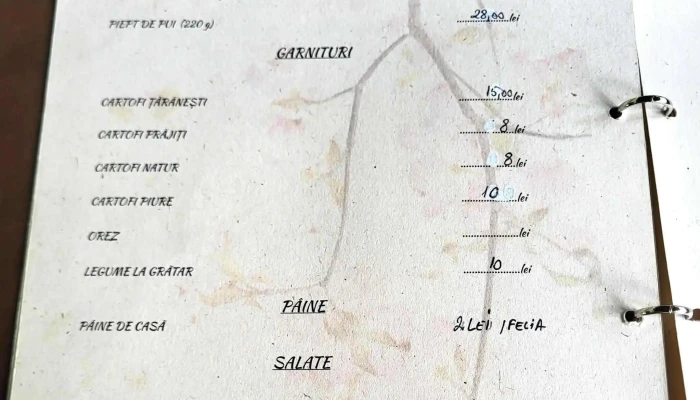 PIEPT DE PUI (220 g) 28,00 lei
GARNITURI
CARTOFI ȚĂRĂNEȘTI 15,00 lei
CARTOFI PRĂJIȚI 8 lei
CARTOFI NATUR 8 lei
CARTOFI PIURE 10 lei
OREZ lei
LEGUME LA GRĂTAR 10 lei
PÂINE
PÂINE DE CASĂ 2 LEI / FELIA
SALATE